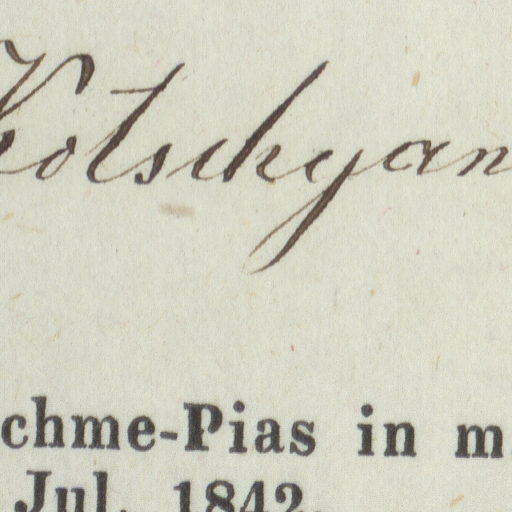 Kotschyan
chme-Pias in m
Jul. 1842.